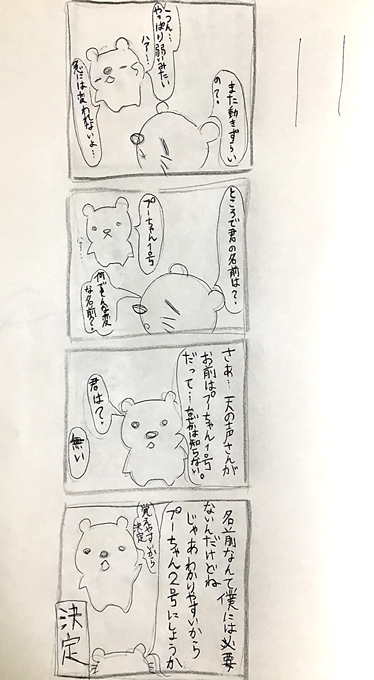 また動きずらい
の？
うん…
やっぱり弱いみたい
ハァ…
急には変われないよ…
ところで君の名前は？
プーちゃん1号
何でそんな変
な名前？
さぁ…天の声さんが
お前はプーちゃん1号
だって…なぜかは知らない。
君は？
無い
名前なんて僕には必要
ないんだけどね
じゃあわかりやすいから
プーちゃん2号にしようか
覚えやすいから
決定
決定